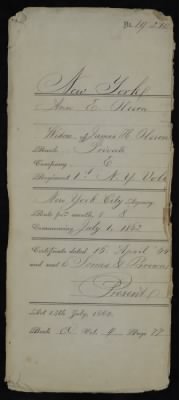 No. 19,212
New York
Ann E. Dixon
Widow of James H. Dixon
Rank Private
Company E
Regiment 1st N.Y. Vols
New York City Agency
Rate per month, $ 8
Commencing July 1, 1862
Certificate dated 15 April '64
and sent to Jones & Brown
Present
Act 14th July, 1862.
Book C Vol. 4 Page 27